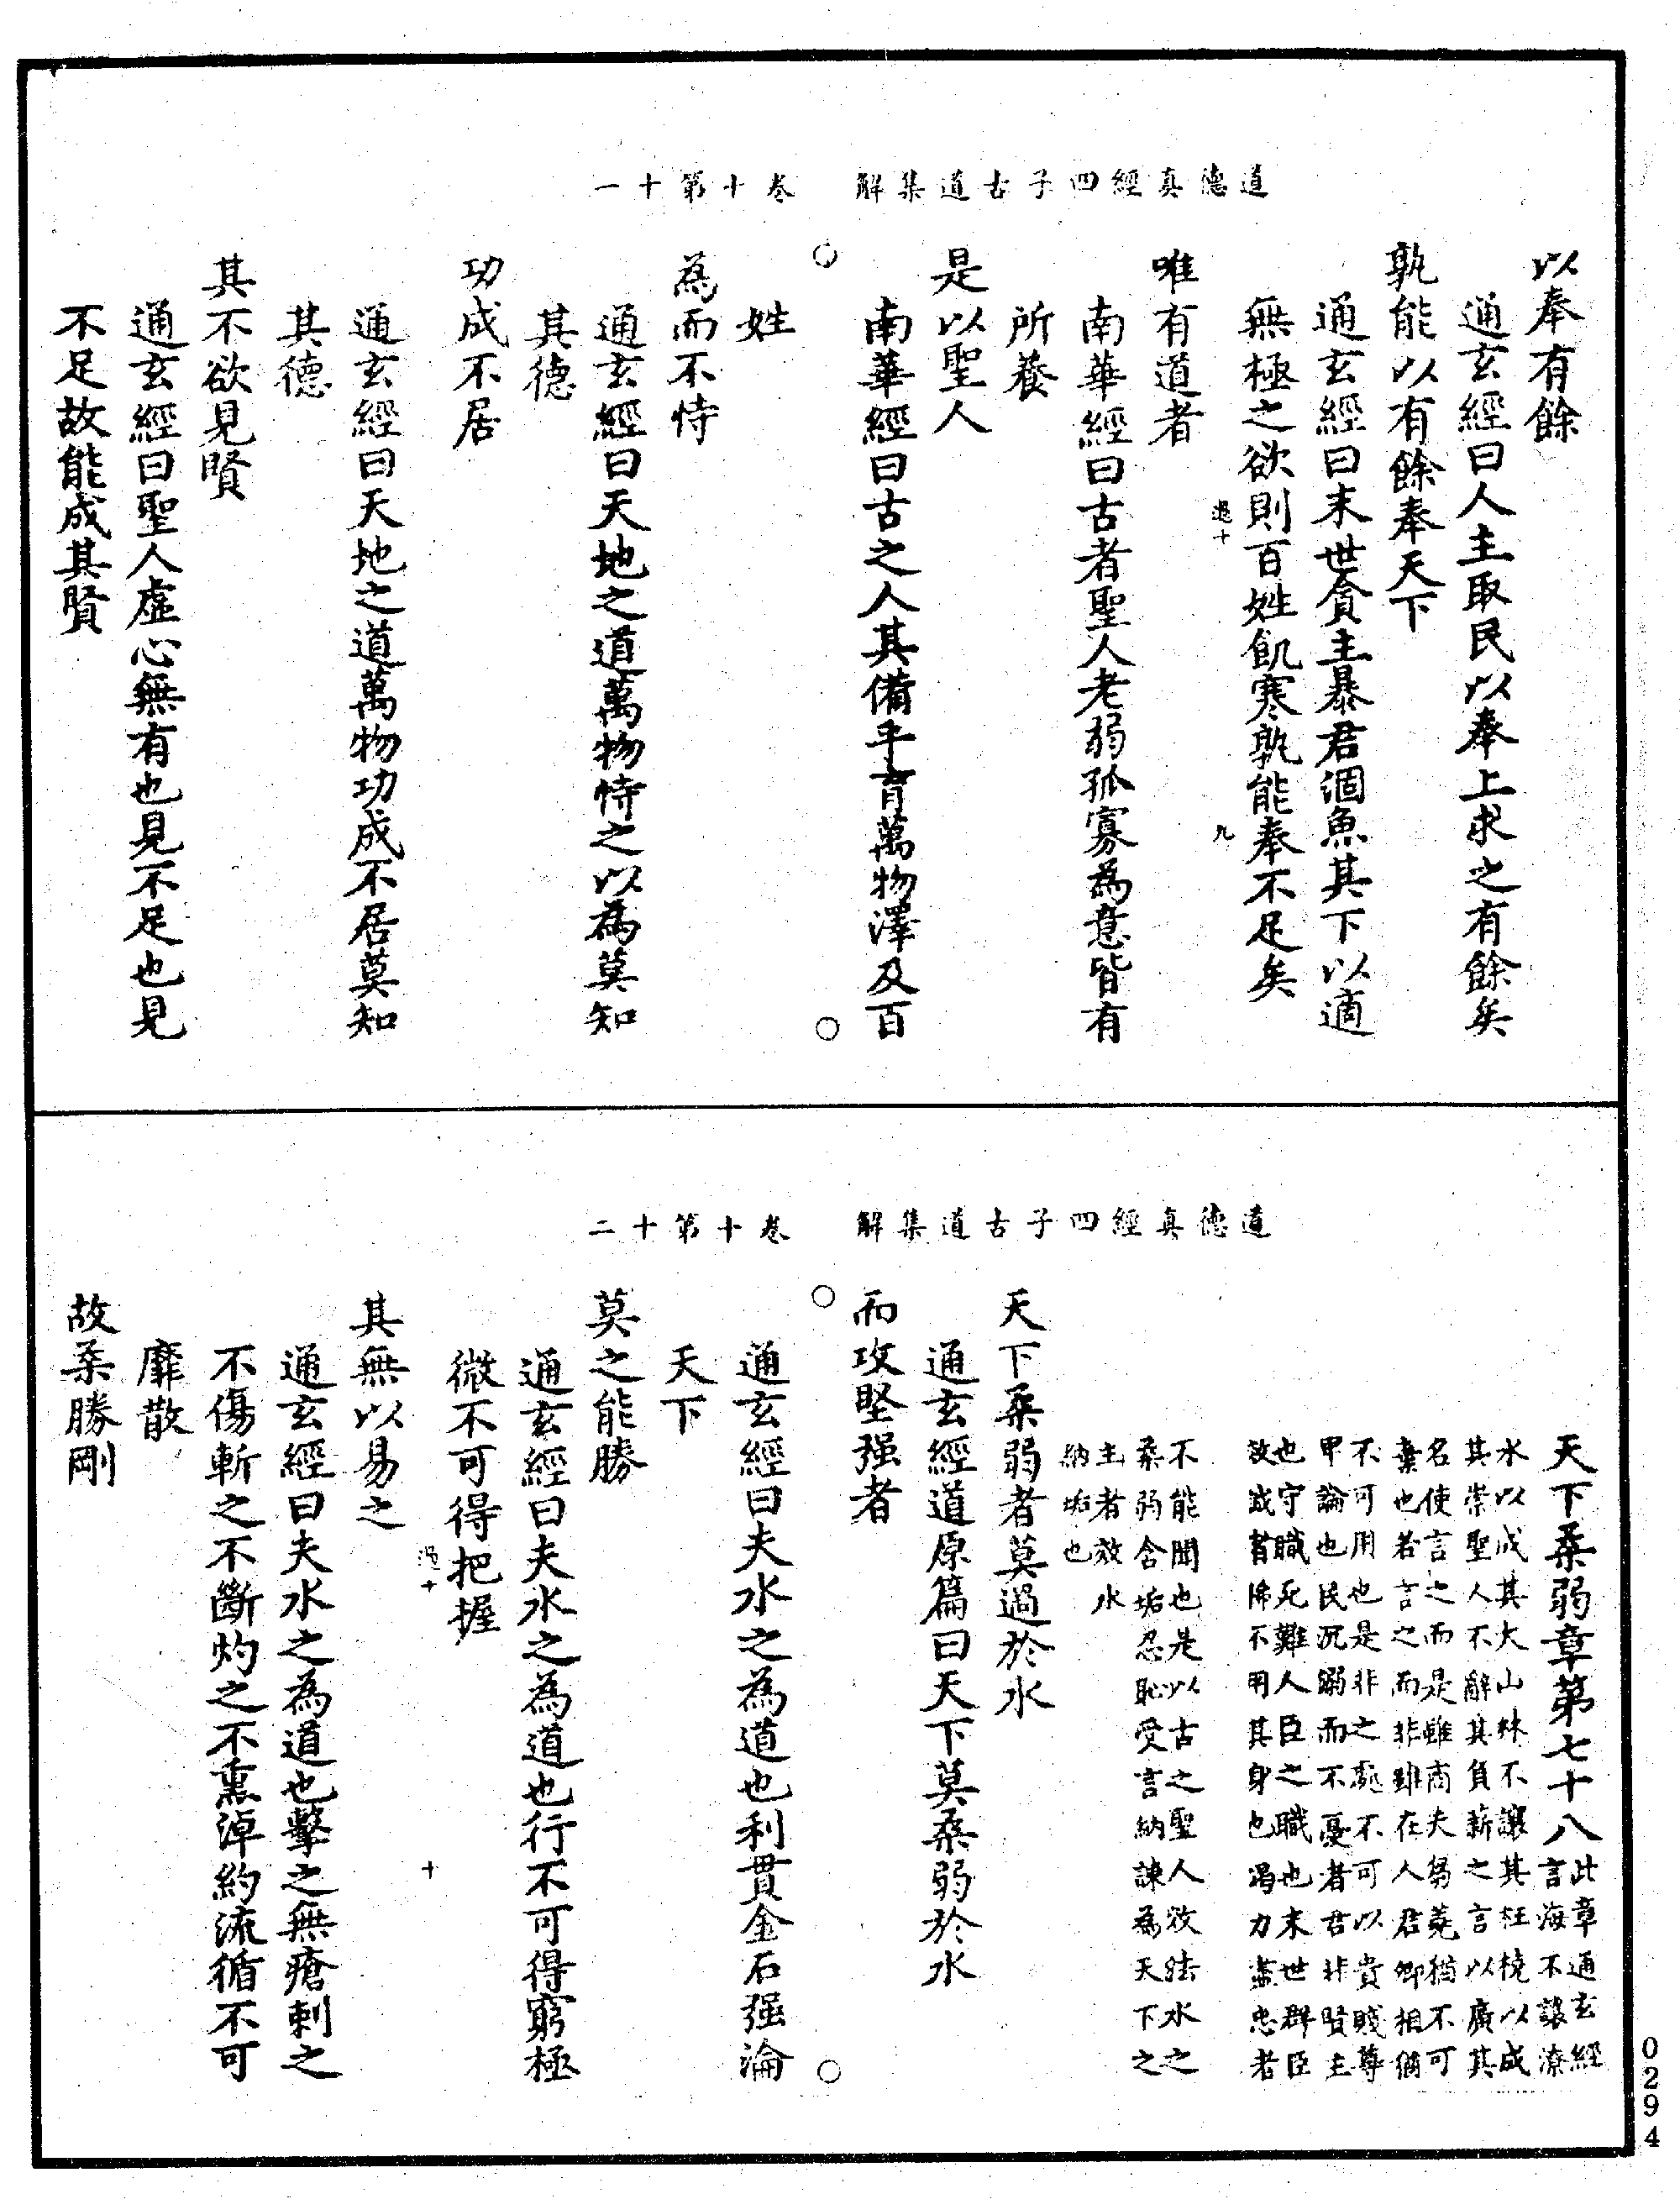 道德真經四子古道集解　卷十第十一
以奉有餘
通玄經曰人主取民以奉上求之有餘矣
孰能以有餘奉天下
通玄經曰末世貪主暴君涸魚其下以適
無極之欲則百姓飢寒孰能奉不足矣
九
唯有道者
南華經曰古者聖人老弱孤寡為意皆有
所養
是以聖人
南華經曰古之人其備乎育萬物澤及百
姓
為而不恃
通玄經曰天地之道萬物恃之以為莫知
其德
功成不居
通玄經曰天地之道萬物功成不居莫知
其德
其不欲見賢
通玄經曰聖人虛心無有也見不足也見
不足故能成其賢
道德真經四子古道集解　卷十第十二
天下柔弱章第七十八
此章通玄經
言海不讓潦
水以成其大山林不讓其枉橈以成
其崇聖人不辭其負薪之言以廣其
名使言之而是雖商夫芻蕘猶不可
棄也若言之而非雖在人君卿相猶
不可用也是非之處不可以貴賤尊
卑論也民沉溺而不憂者君非賢主
也守職死難人臣之職也末世群臣
故試著㤄不用其身也竭力盡忠者
不能聞也是以古之聖人效法水之
柔弱含垢忍恥受言納諫為天下之
主者效水
納垢也
天下柔弱者莫過於水
通玄經道原篇曰天下莫柔弱於水
而攻堅强者
通玄經曰夫水之為道也利貫金石强淪
天下
莫之能勝
通玄經曰夫水之為道也行不可得窮極
微不可得把握
十
其無以易之
通玄經曰夫水之為道也擊之無瘡刺之
不傷斬之不斷灼之不熏淖約流循不可
靡散
故柔勝剛
0294